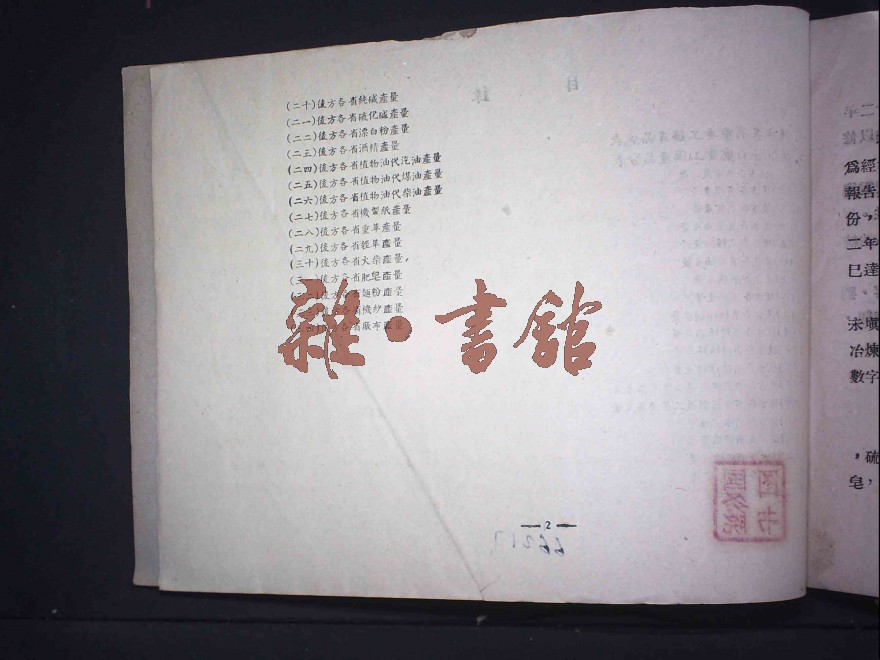 (二十)後方各省純碱產量
(二一)後方各省硫化碱產量
(二二)後方各省漂白粉產量
(二三)後方各省酒精產量
(二四)後方各省植物油代汽油產量
(二五)後方各省植物油代煤油產量
(二六)後方各省植物油代柴油產量
(二七)後方各省機製紙產量
(二八)後方各省重革產量
(二九)後方各省輕革產量
(三十)後方各省火柴產量,
(三一)後方各省肥皂產量
後方各省麵粉產量
各省機紗產量
各省廠布產量
雜·書館
—2—
二年
為經
報告
份,
二年
已達
未填
冶煉
數字
,硫
皂,